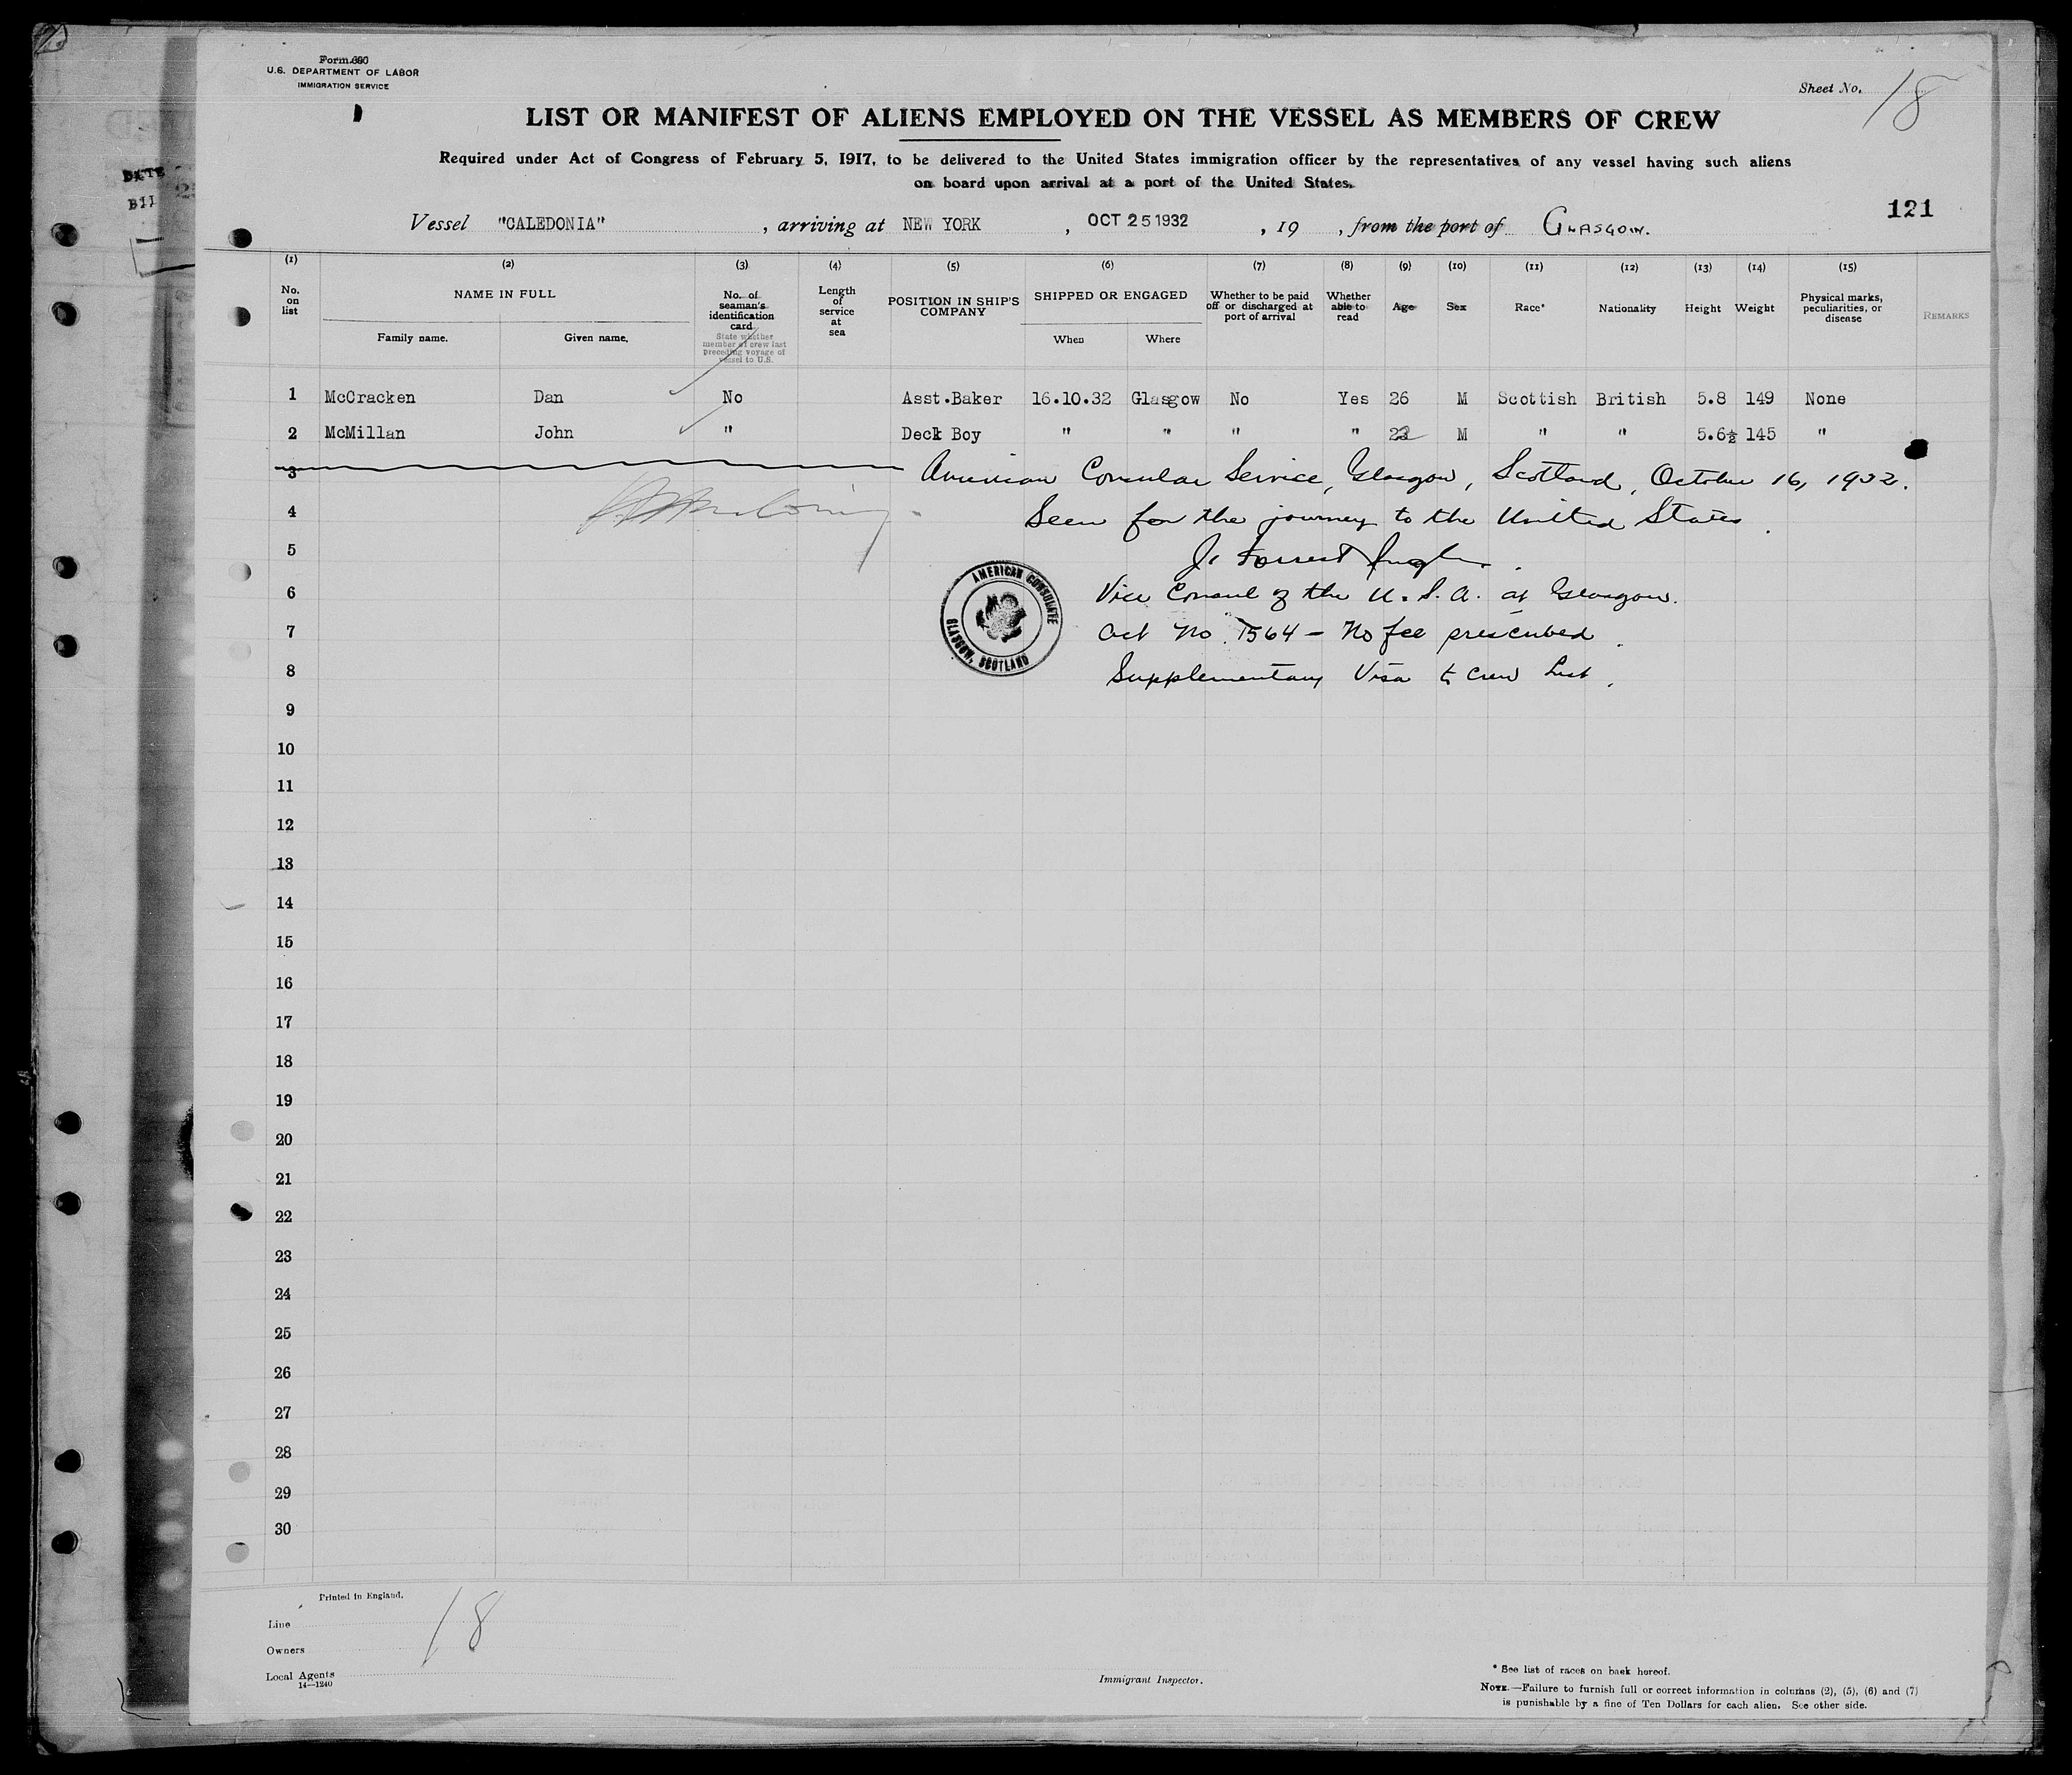 Form 680
U.S. DEPARTMENT OF LABOR
IMMIGRATION SERVICE
Sheet No. 18
LIST OR MANIFEST OF ALIENS EMPLOYED ON THE VESSEL AS MEMBERS OF CREW
Required under Act of Congress of February 5, 1917, to be delivered to the United States immigration officer by the representatives of any vessel having such aliens
on board upon arrival at a port of the United States.
121
Vessel "CALEDONIA", arriving at NEW YORK, OCT 25 1932, 19 , from the port of GLASGOW.
(1) (2) (3) (4) (5) (6) (7) (8) (9) (10) (11) (12) (13) (14) (15)
No. on list
NAME IN FULL
Family name. Given name.
No. of seaman's identification card
State whether member of crew last preceding voyage of vessel to U.S.
Length of service at sea
POSITION IN SHIP'S COMPANY
SHIPPED OR ENGAGED
When Where
Whether to be paid off or discharged at port of arrival
Whether able to read
Age
Sex
Race*
Nationality
Height
Weight
Physical marks, peculiarities, or disease
REMARKS
1 McCracken Dan No Asst.Baker 16.10.32 Glasgow No Yes 26 M Scottish British 5.8 149 None
2 McMillan John " Deck Boy " " " " M " " 5.6½ 145 "
3 American Consular Service, Glasgow, Scotland, October 16, 1932.
4 Seen for the journey to the United States.
5 J. Forrest
6 Vice Consul of the U.S.A. at Glasgow.
7 Act No. 1564 - No fee prescribed.
8 Supplementary Visa to Crew List.
AMERICAN CONSULATE
GLASGOW, SCOTLAND
9
10
11
12
13
14
15
16
17
18
19
20
21
22
23
24
25
26
27
28
29
30
Printed in England.
18
Line
Owners
Local Agents
14—1240
Immigrant Inspector.
* See list of races on back hereof.
NOTE.—Failure to furnish full or correct information in columns (2), (5), (6) and (7)
is punishable by a fine of Ten Dollars for each alien. See other side.